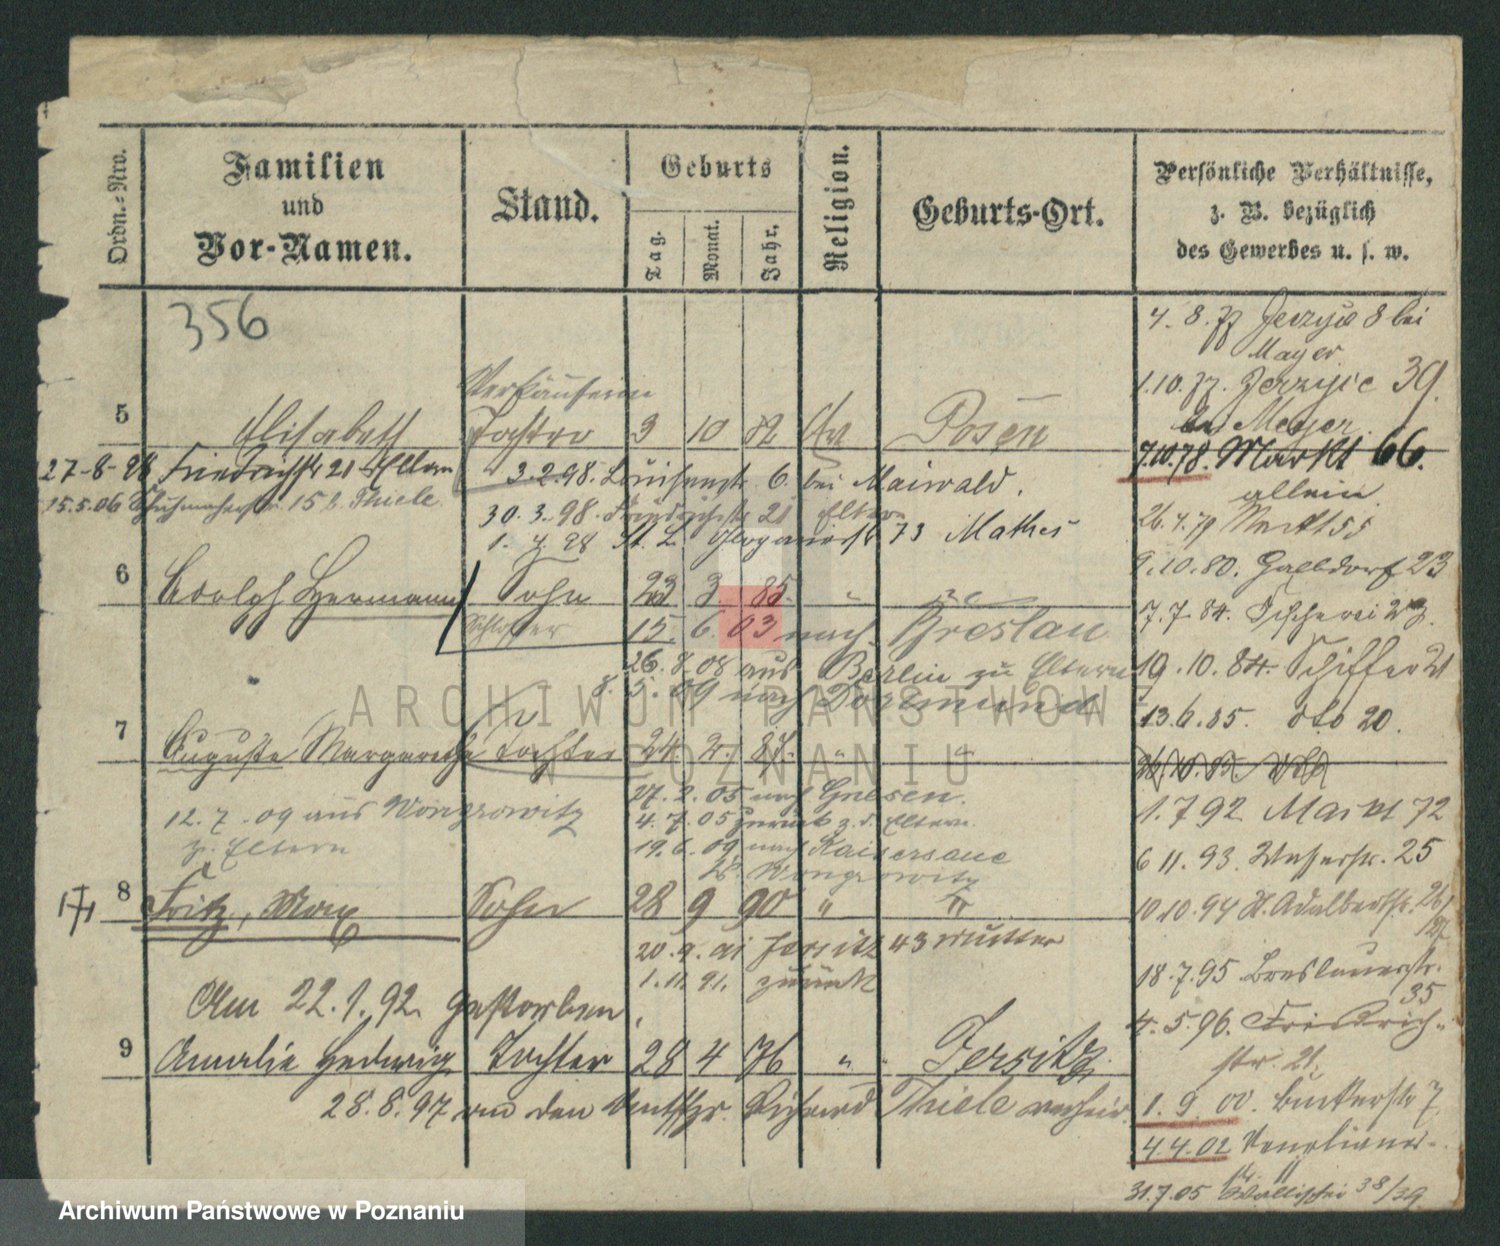 Ordn.-Nro.
Familien
und
Vor-Namen.
Stand.
Geburts
Tag.
Monat.
Jahr.
Religion.
Geburts-Ort.
Persönliche Verhältnisse,
z. B. bezüglich
des Gewerbes u. s. w.
356
4. 8. 77 Jerzyce 8 bei
Mayer
1.10.77. Jerzyce 39.
Meyer
Verkäuferin
5 Elisabeth Tochter 3 10 82 Ev Posen
7.10.78. Markt 66.
allein
27-8-98 Friedrichstr 21 Eltern
3.2.98. Louisenstr 6. bei Maiwald.
15.5.06 Schuhmacherstr. 15 b. Thiele
30. 3. 98. Friedrichstr 21 Eltern
1. 7. 98 73 Mathes
26.4.79
9.10.80. 23
6 Adolph Hermann Sohn 23 3. 85. "
7.7.84. Fischerei
Schlosser 15. 6. 03 nach Breslau
26. 8. 08 aus Berlin zu Eltern
19.10.84. Schiffer
8. 5. 09 nach Dortmund
13.6.85. dto 20.
7 Auguste Margarethe Tochter 24. 2. 87. " "
27. 2. 05 nach Gnesen.
1.7 92 Markt 72
12. 7. 09 aus Wongrowitz
4. 7. 05 zurück z. d. Eltern.
z. Eltern
19. 6. 09 nach Kaisersaue
Wongrowitz
6 11. 93. Wasserstr. 25
8 Fritz, Max Sohn 28 9 90 " "
10.10.94 St. Adalbertstr. 26/
20. 9. 91 Jersitz 43 Mutter
1. 11. 91. zurück
18.7.95 Breslauerstr.
35
Am 22.1.92. gestorben.
4. 5. 96. Friedrich-
str. 21.
9 Amalie Hedwig Tochter 28 4 76 " Jersitz
28. 8. 97 an den Richard Thiele verheir.
1. 9. 00. Buttelstr 7.
4.4.02 Venetianer-
str.
31.7.05 Wallischei 38/39
ARCHIWUM PAŃSTWOWE
W POZNANIU
Archiwum Państwowe w Poznaniu